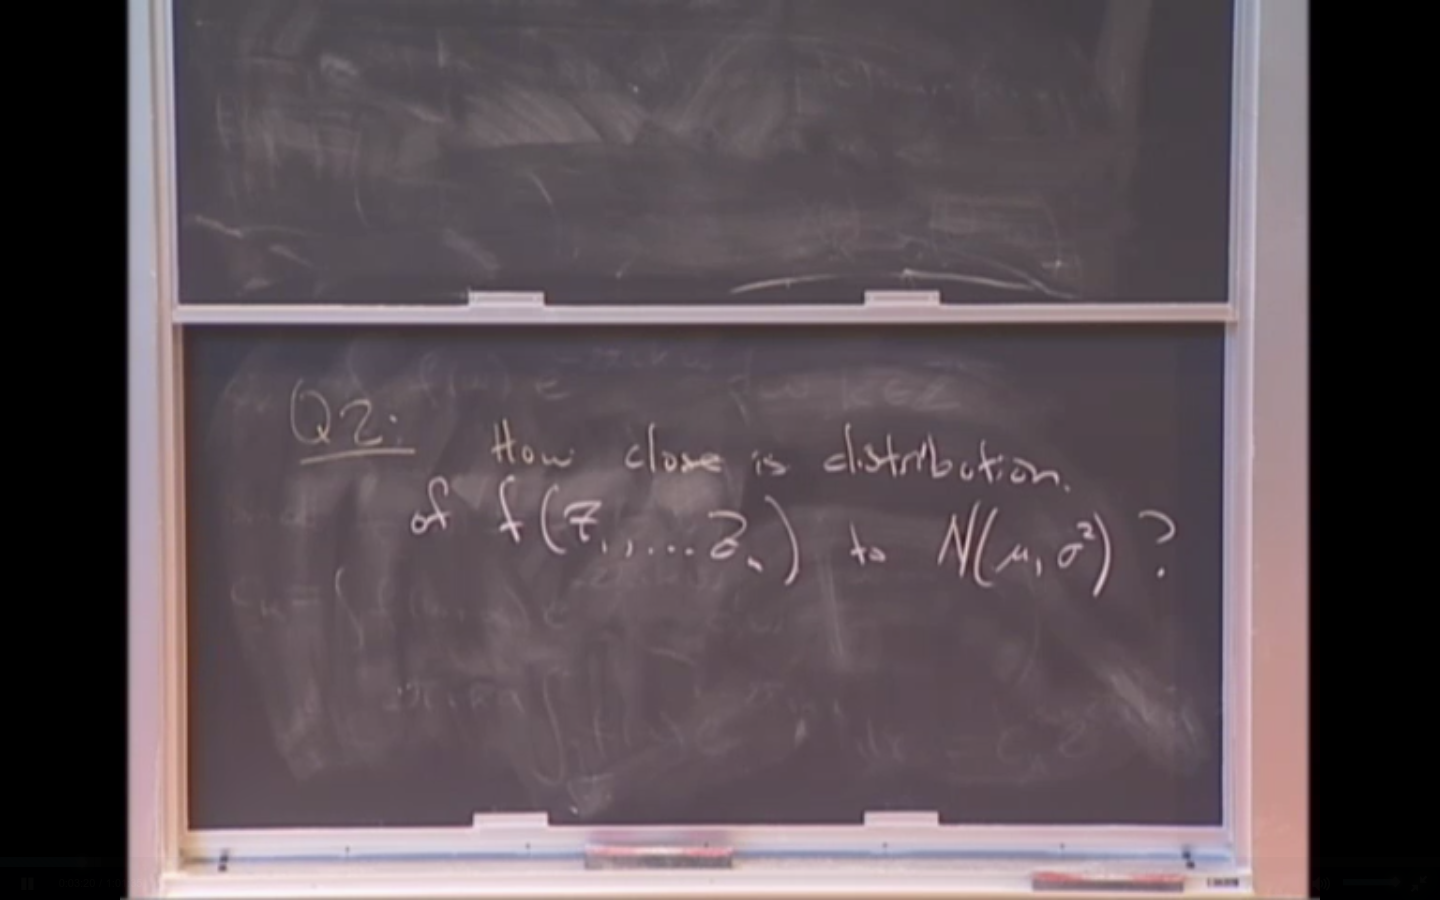 Q2: How close is distribution
of f(Z₁,...Zₙ) to N(μ, σ²) ?